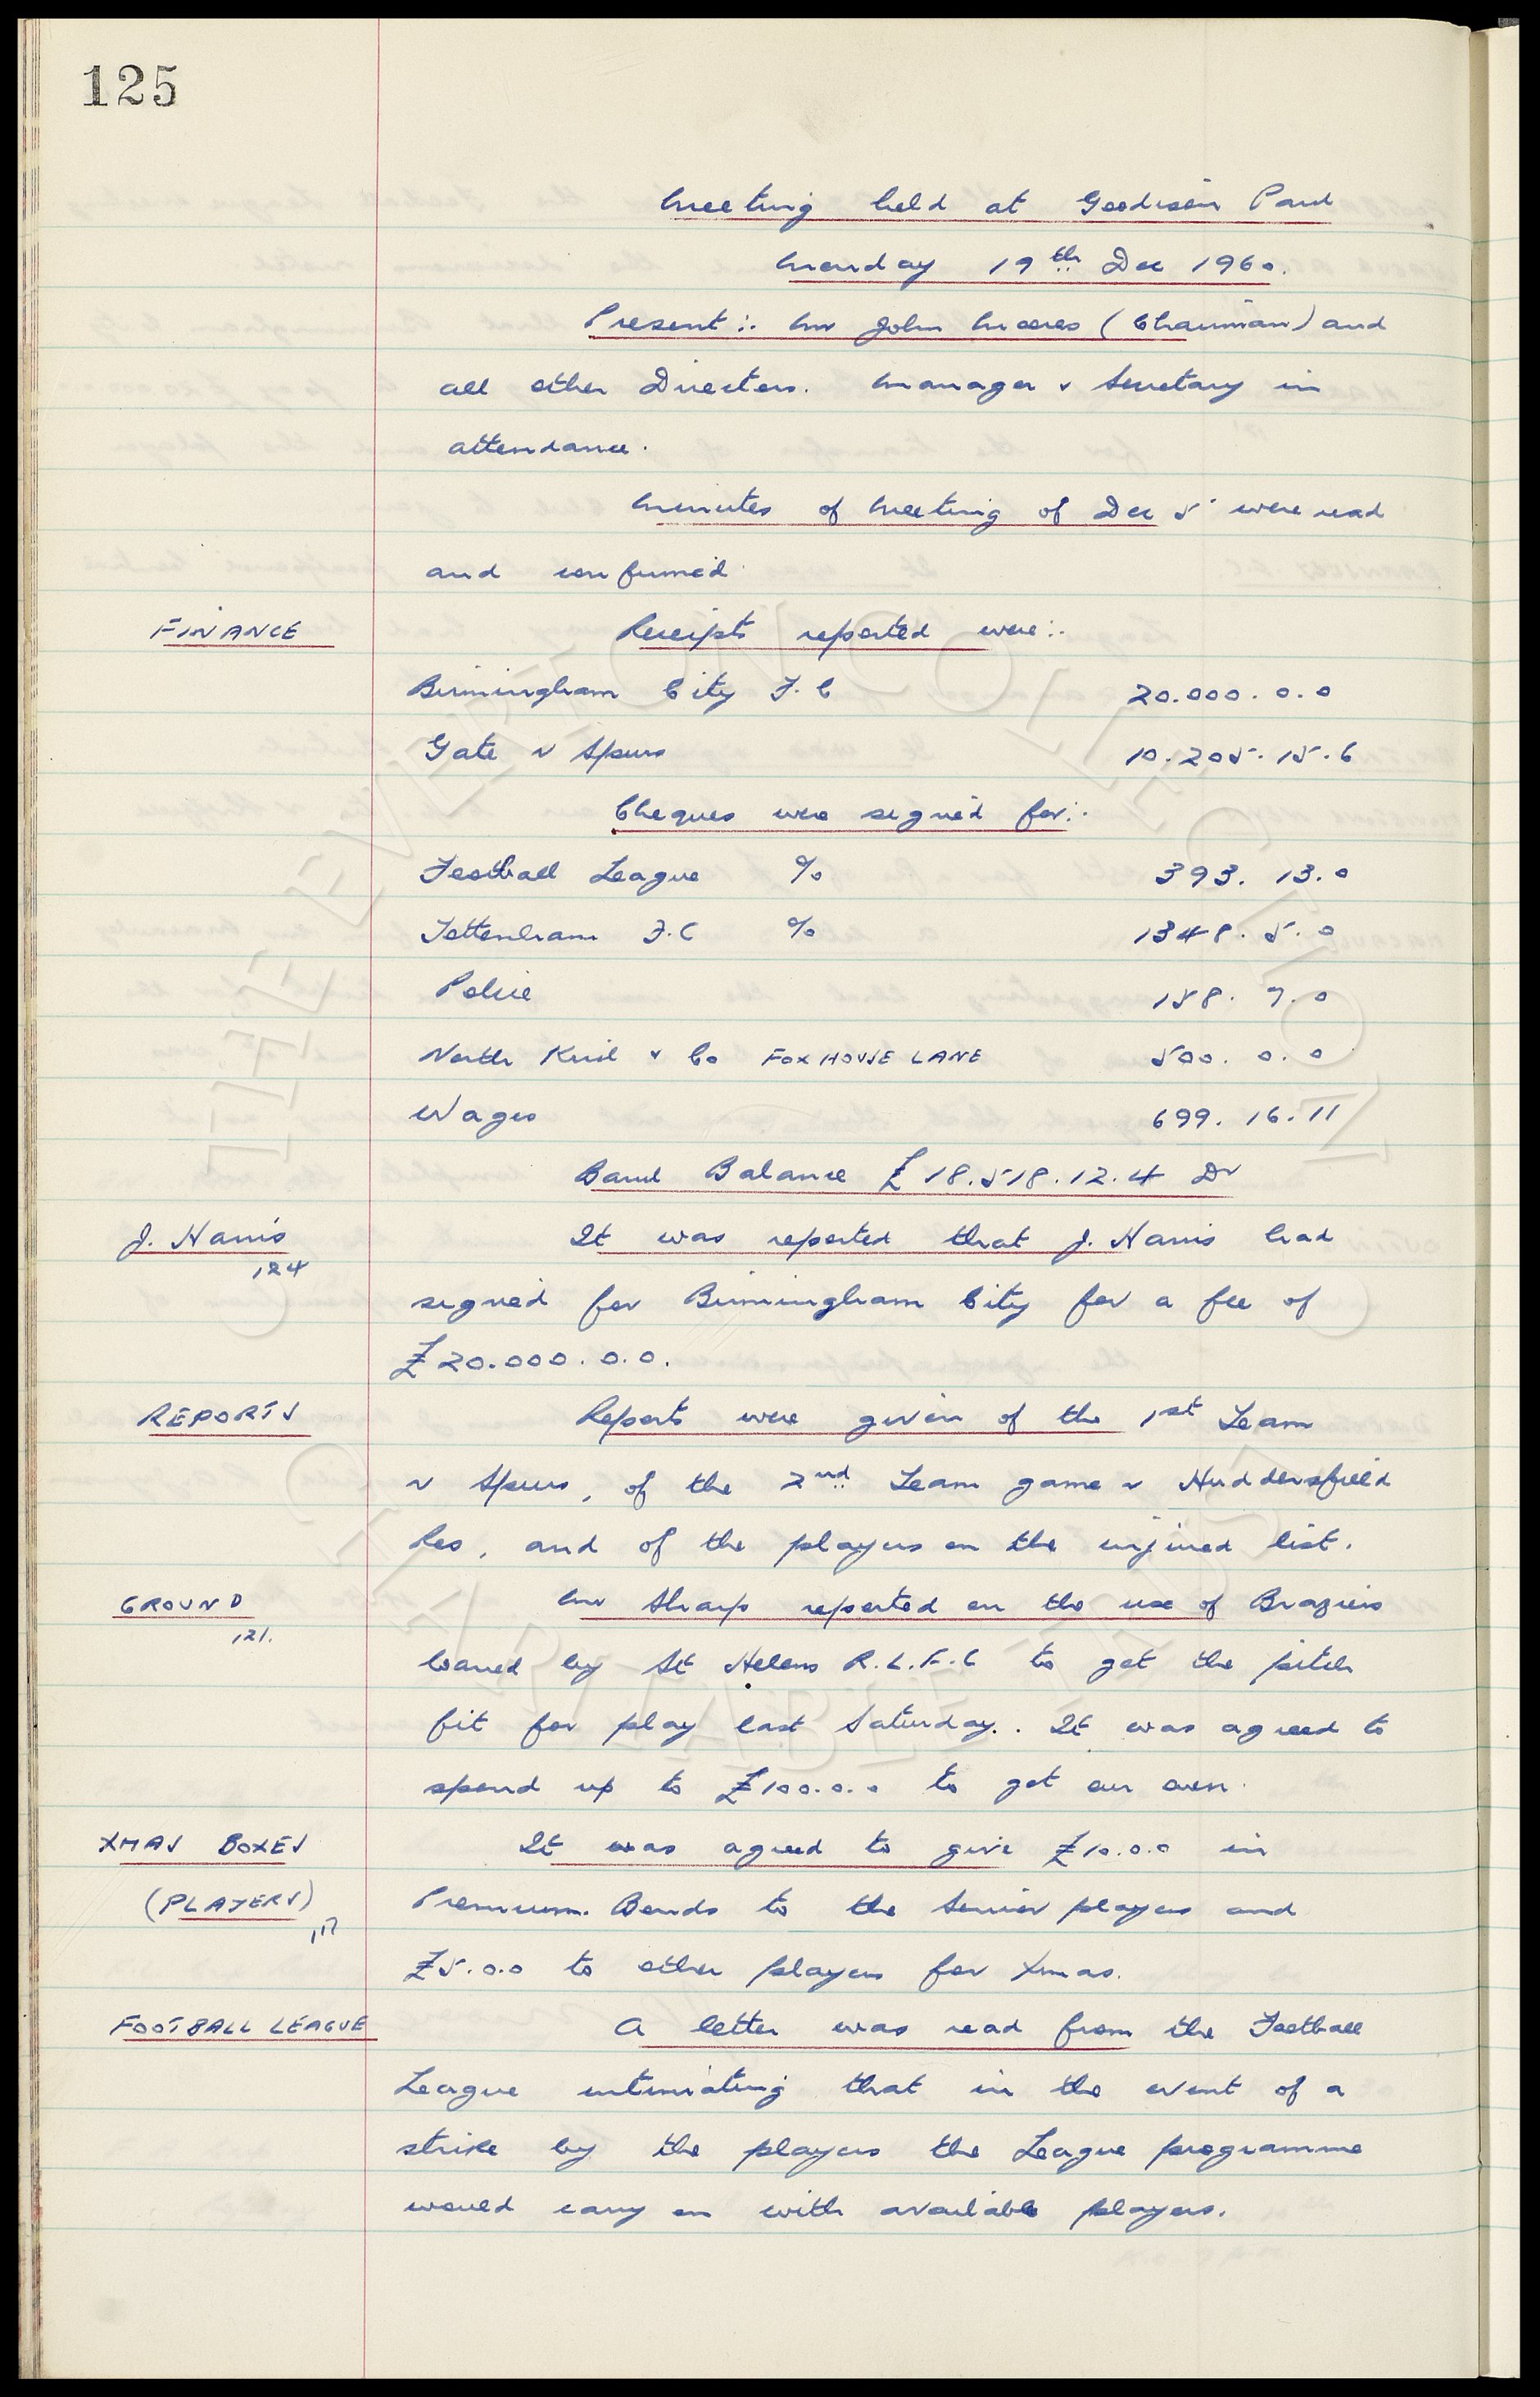 125
Meeting held at Goodison Park
Monday 19th Dec 1960.
Present:. Mr John Moores (Chairman) and
all other Directors. Manager & Secretary in
attendance.
Minutes of Meeting of Dec 5 were read
and confirmed
FINANCE Receipts reported were:.
Birmingham City F.C 20.000.0.0
Gate v Spurs 10.205.15.6
Cheques were signed for:.
Football League % 393.13.0
Tottenham F.C % 1348.5.0
Police 158.7.0
North Kirk & Co FOXHOUSE LANE 500.0.0
Wages 699.16.11
Bank Balance £18.518.12.4 Dr
J. Harris It was reported that J. Harris had
124
signed for Birmingham City for a fee of
£20.000.0.0.
REPORTS Reports were given of the 1st Team
v Spurs, of the 2nd Team game v Huddersfield
Res, and of the players on the injured list.
GROUND Mr Sharp reported on the use of Braziers
121.
loaned by St Helens R.L.F.C to get the pitch
fit for play last Saturday. It was agreed to
spend up to £100.0.0 to get our own.
XMAS BOXES It was agreed to give £10.0.0 in
(PLAYERS) Premium Bonds to the Senior players and
117
£5.0.0 to other players for Xmas.
FOOTBALL LEAGUE A letter was read from the Football
League intimating that in the event of a
strike by the players the League programme
would carry on with available players.
EVERTON
COLLECTION